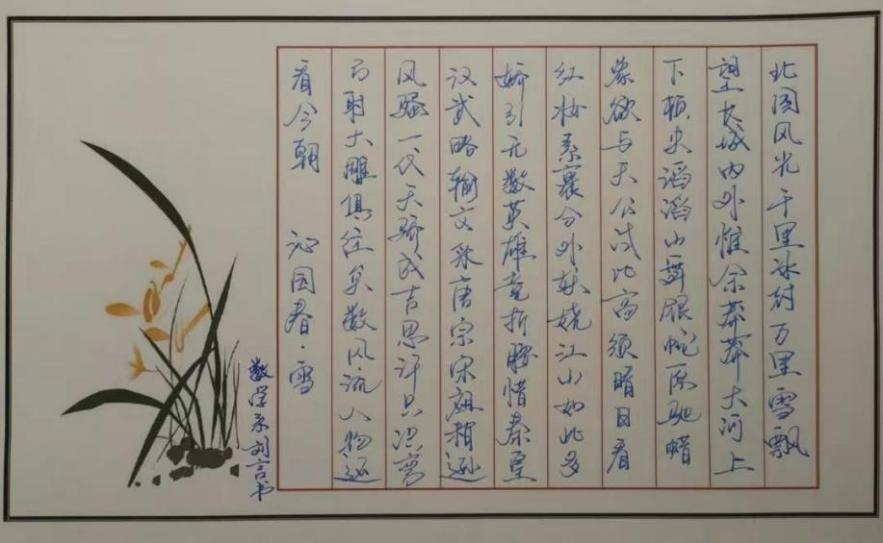 北国风光千里冰封万里雪飘
望长城内外惟余莽莽大河上
下顿失滔滔山舞银蛇原驰蜡
象欲与天公试比高须晴日看
红妆素裹分外妖娆江山如此多
娇引无数英雄竞折腰惜秦皇
汉武略输文采唐宗宋祖稍逊
风骚一代天骄成吉思汗只识弯
弓射大雕俱往矣数风流人物还
看今朝 沁园春·雪
数学系刘言书